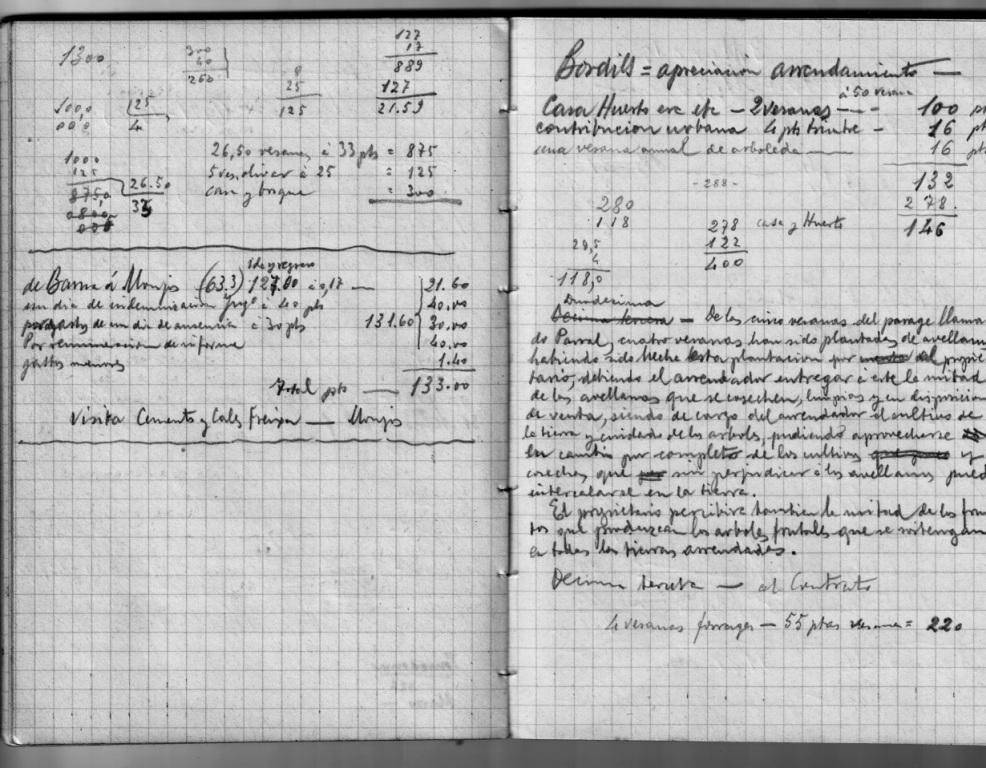 1300
300
40
260
0
25
125
127
17
889
127
21.59
1000, 25
000 4
1000
125
8750, 26.50
0800 33
000
26,50 vesanas á 33 pts = 875
5 ves, olivar á 25 = 125
casa y bosque = 300
Ida y regreso
de Barna á Monjos (63.3) 127.00 á 0,17 — 21.60
un dia de indemnizacion Jng⁰ á 40 pts 40,00
por gastos de un dia de ausencia á 30 pts 131.60 30,00
Por remuneracion de informe 40,00
gastos menores 1.40
Total pts — 133.00
Visita Cements y Cales Freixa — Monjos
Bordils = apreciacion arrendamiento —
á 50 vesana
Casa Huerto era etc — 2 vesanas — 100 pt
contribucion urbana 4 pts trimtre — 16 pt
una vesana annal de arboleda — 16 pts
132
278.
146
-288-
280
118
29,5
4
118,0
278 casa y Huerto
122
400
Duodecima
Decima tercera — De las cinco vesanas del parage llama
do Parral, cuatro vesanas han sido plantadas de avellanos
habiendo sido hecha esta plantacion por el propie
tario, debiendo el arrendador entregar á este la mitad
de las avellanas que se cosechen, limpias y en disposicion
de venta, siendo de cargo del arrendador el cultivo de
la tierra y cuidado de los arboles, pudiendo aprovecharse
en cambio por completo de los cultivos y
cosechas que sin perjudicar á los avellanos pued
intercalarse en la tierra.
El propietario percibira tambien la mitad de los fru
tos que produzcan los arboles frutales que se
en todas las tierras arrendadas.
Decima tercera — al Contrato
4 vesanas forrages — 55 ptas vesana = 220